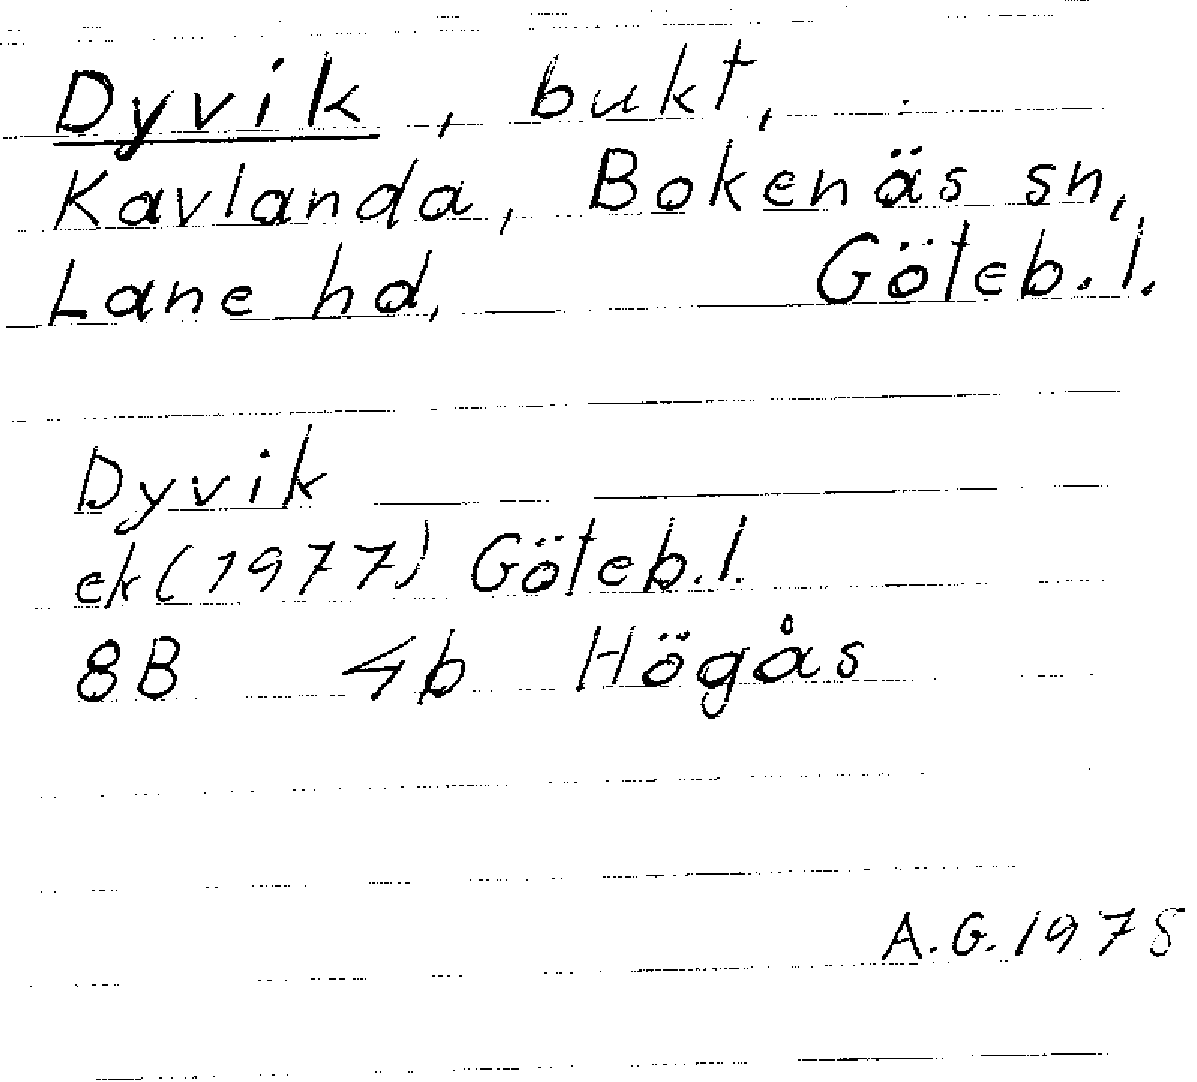 Dyvik, bukt,
Kavlanda, Bokenäs sn,
Lane hd, Göteb.l.
Dyvik
ek(1977) Göteb.l.
8B 4b Högås
A.G. 1978